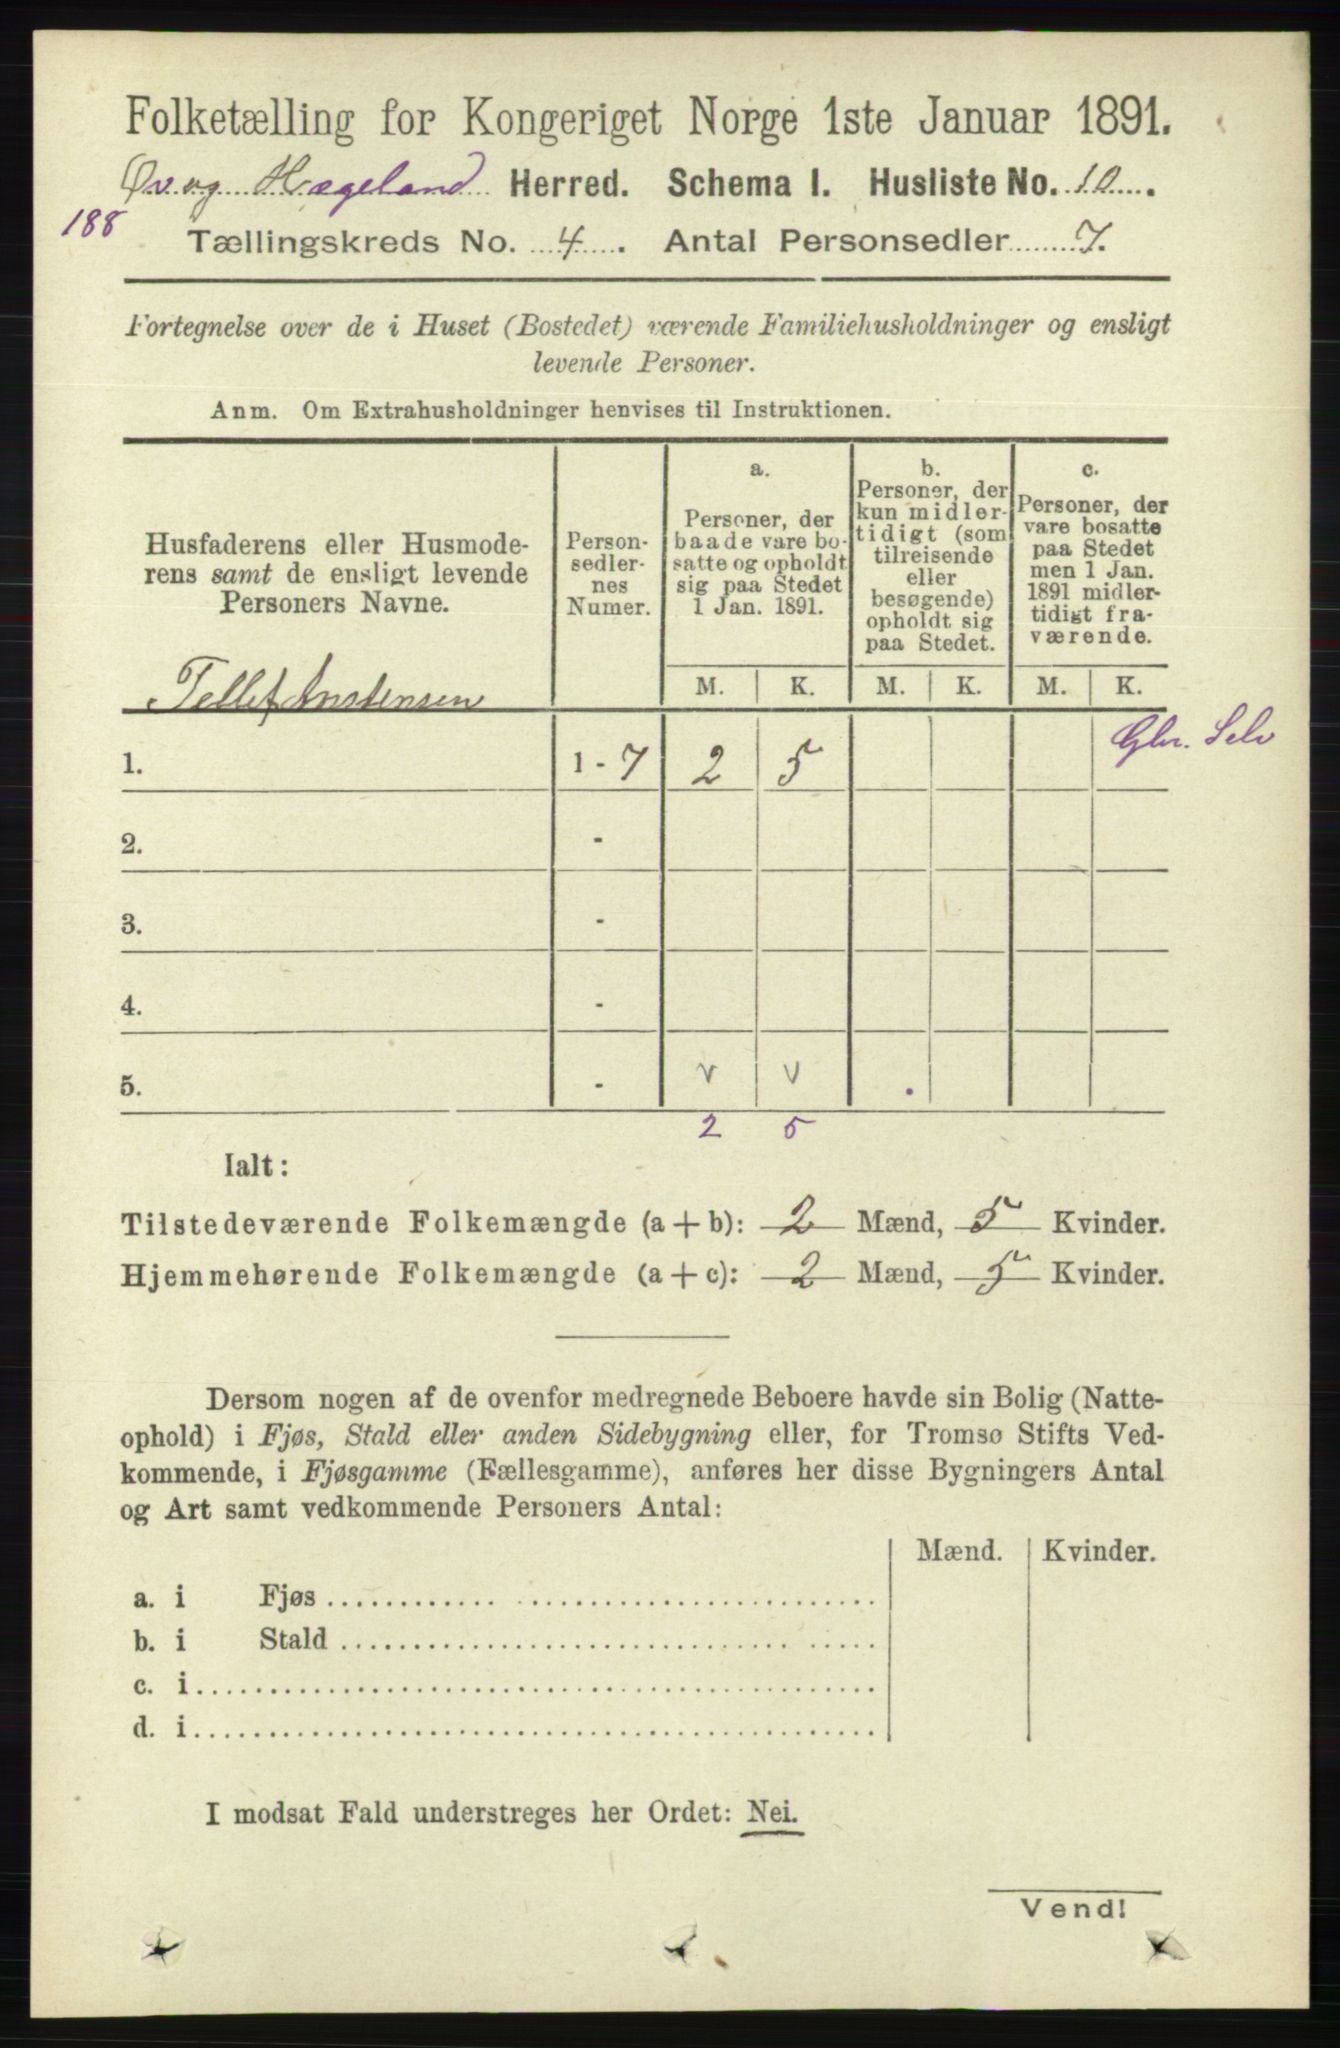 Folketælling for Kongeriget Norge 1ste Januar 1891.
Øv og Hægeland Herred. Schema I. Husliste No. 10.
188
Tællingskreds No. 4. Antal Personsedler 7.
Fortegnelse over de i Huset (Bostedet) værende Familiehusholdninger og ensligt
levende Personer.
Anm. Om Extrahusholdninger henvises til Instruktionen.
Husfaderens eller Husmode-
rens samt de ensligt levende
Personers Navne.
Person-
sedler-
nes
Numer.
a.
Personer, der
baade vare bo-
satte og opholdt
sig paa Stedet
1 Jan. 1891.
b.
Personer, der
kun midler-
tidigt (som
tilreisende
eller
besøgende)
opholdt sig
paa Stedet.
c.
Personer, der
vare bosatte
paa Stedet
men 1 Jan.
1891 midler-
tidigt fra-
værende.
M. K. M. K. M. K.
Tellef Anstensen
Gbr. Selv
1. 1 - 7 2 5
2. -
3. -
4. -
5. - v v
2 5
Ialt:
Tilstedeværende Folkemængde (a + b): 2 Mænd, 5 Kvinder.
Hjemmehørende Folkemængde (a + c): 2 Mænd, 5 Kvinder.
Dersom nogen af de ovenfor medregnede Beboere havde sin Bolig (Natte-
ophold) i Fjøs, Stald eller anden Sidebygning eller, for Tromsø Stifts Ved-
kommende, i Fjøsgamme (Fællesgamme), anføres her disse Bygningers Antal
og Art samt vedkommende Personers Antal:
Mænd. Kvinder.
a. i Fjøs
b. i Stald
c. i
d. i
I modsat Fald understreges her Ordet: Nei.
Vend!